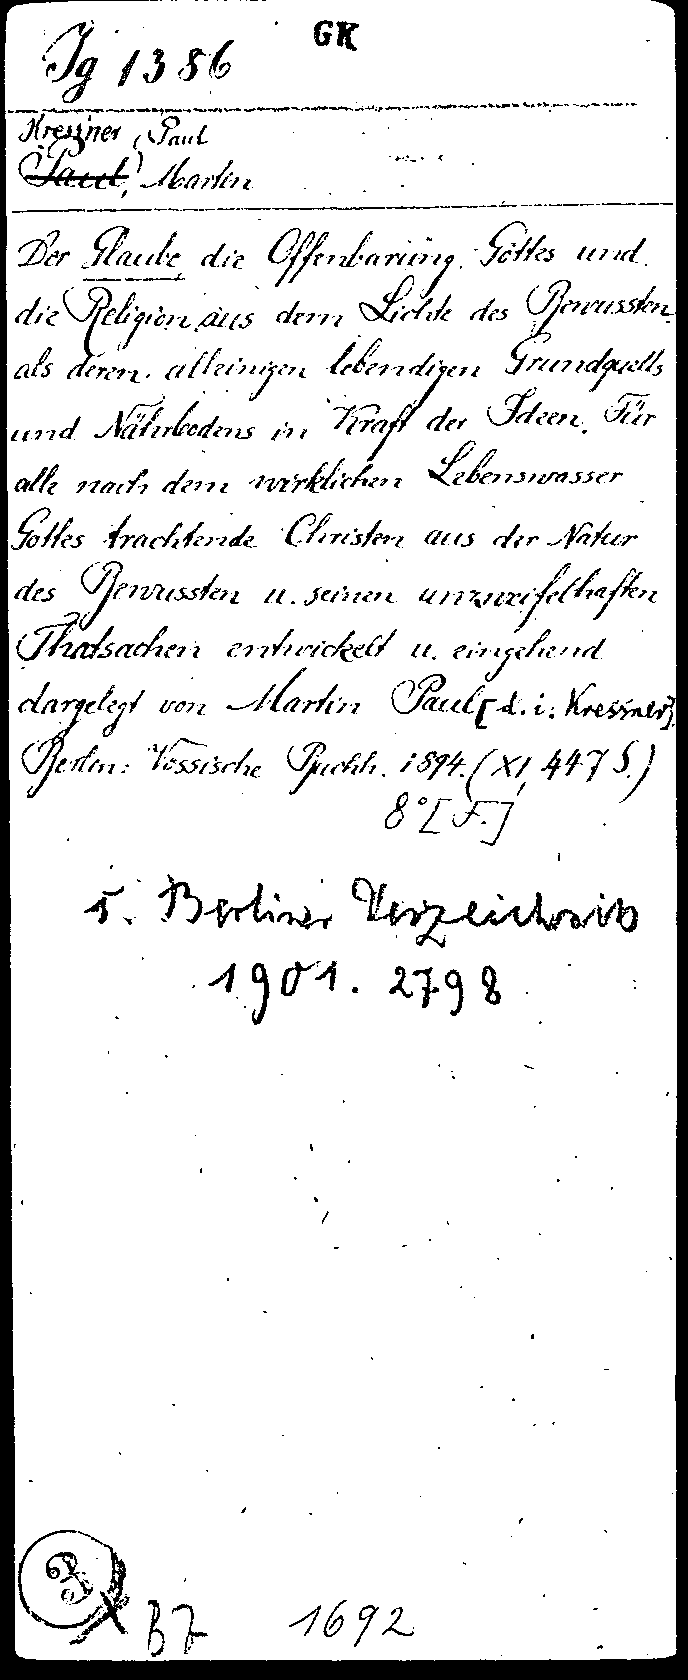 GK
Ig 1386
Kressner, Paul
Paul, Martin
Der Glaube, die Offenbarung Gottes und
die Religion aus dem Lichte des Bewussten
als deren alleinigen lebendigen Grundquells
und Nährbodens in Kraft der Ideen. Für
alle nach dem wirklichen Lebenswasser
Gottes trachtende Christen aus der Natur
des Bewussten u. seinen unzweifelhaften
Thatsachen entwickelt u. eingehend
dargelegt von Martin Paul [d. i. Kressner].
Berlin: Vossische Buchh. 1894. (XI, 447 S.)
8° [F.]
5. Berliner Verzeichnis
1901. 2798
3
BZ 1692